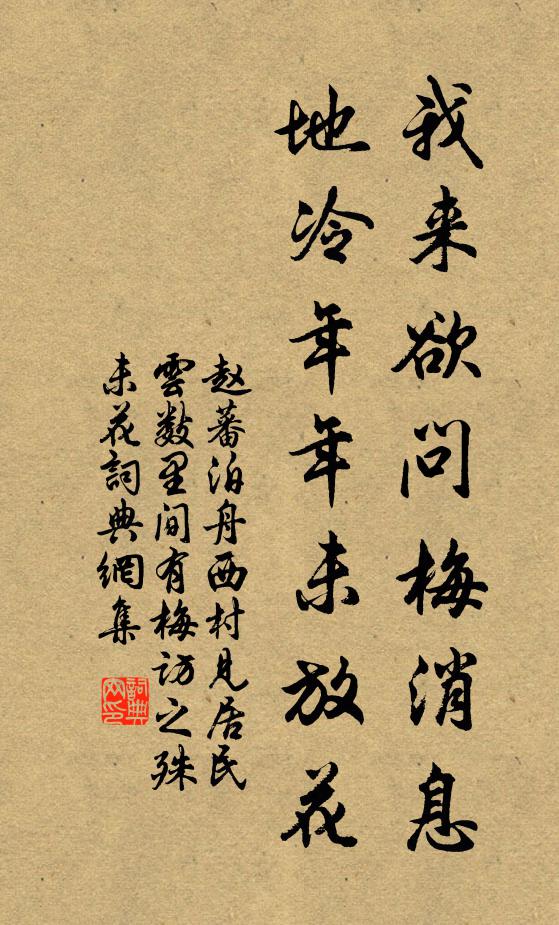 我来欲问梅消息
地冷年年未放花
赵蕃泊舟西村见居民
雲数里间有梅访之殊
未花詞典網集
詞典網印